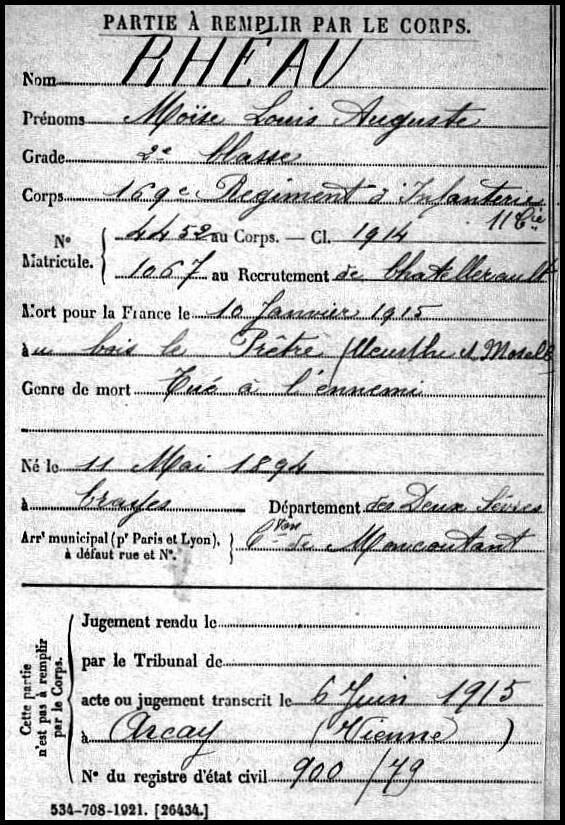 PARTIE À REMPLIR PAR LE CORPS.
Nom RHÉAU
Prénoms Moïse Louis Auguste
Grade 2e Classe
Corps 169e Régiment d'Infanterie
11 Cie
Nº Matricule. 4452 au Corps. — Cl. 1914
1067 au Recrutement de Chatellerault
Mort pour la France le 10 Janvier 1915
au bois le Prêtre (Meurthe et Moselle
Genre de mort Tué à l'ennemi
Né le 11 Mai 1894
à Département des Deux Sèvres
Arrt municipal (pr Paris et Lyon), à défaut rue et Nº. Cton de Moncoutant
Cette partie n'est pas à remplir par le Corps.
Jugement rendu le
par le Tribunal de
acte ou jugement transcrit le 6 Juin 1915
à Arcay (Vienne)
Nº du registre d'état civil 900/79
534-708-1921. [26434.]